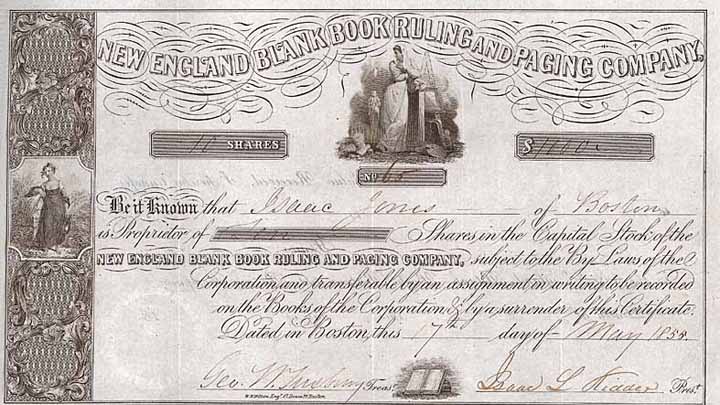 NEW ENGLAND BLANK BOOK RULING AND PAGING COMPANY,
10 SHARES $1000
No 65
Be it Known that Isaac Jones of Boston
is Proprietor of Ten Shares in the Capital Stock of the
NEW ENGLAND BLANK BOOK RULING AND PAGING COMPANY, subject to the By Laws of the
Corporation and transferable by an assignment in writing to be recorded
on the Books of the Corporation, & by a surrender of this Certificate.
Dated in Boston, this 17th day of May 1855
Geo. W. Treasr. Isaac L Kidder Prest.
Boston.